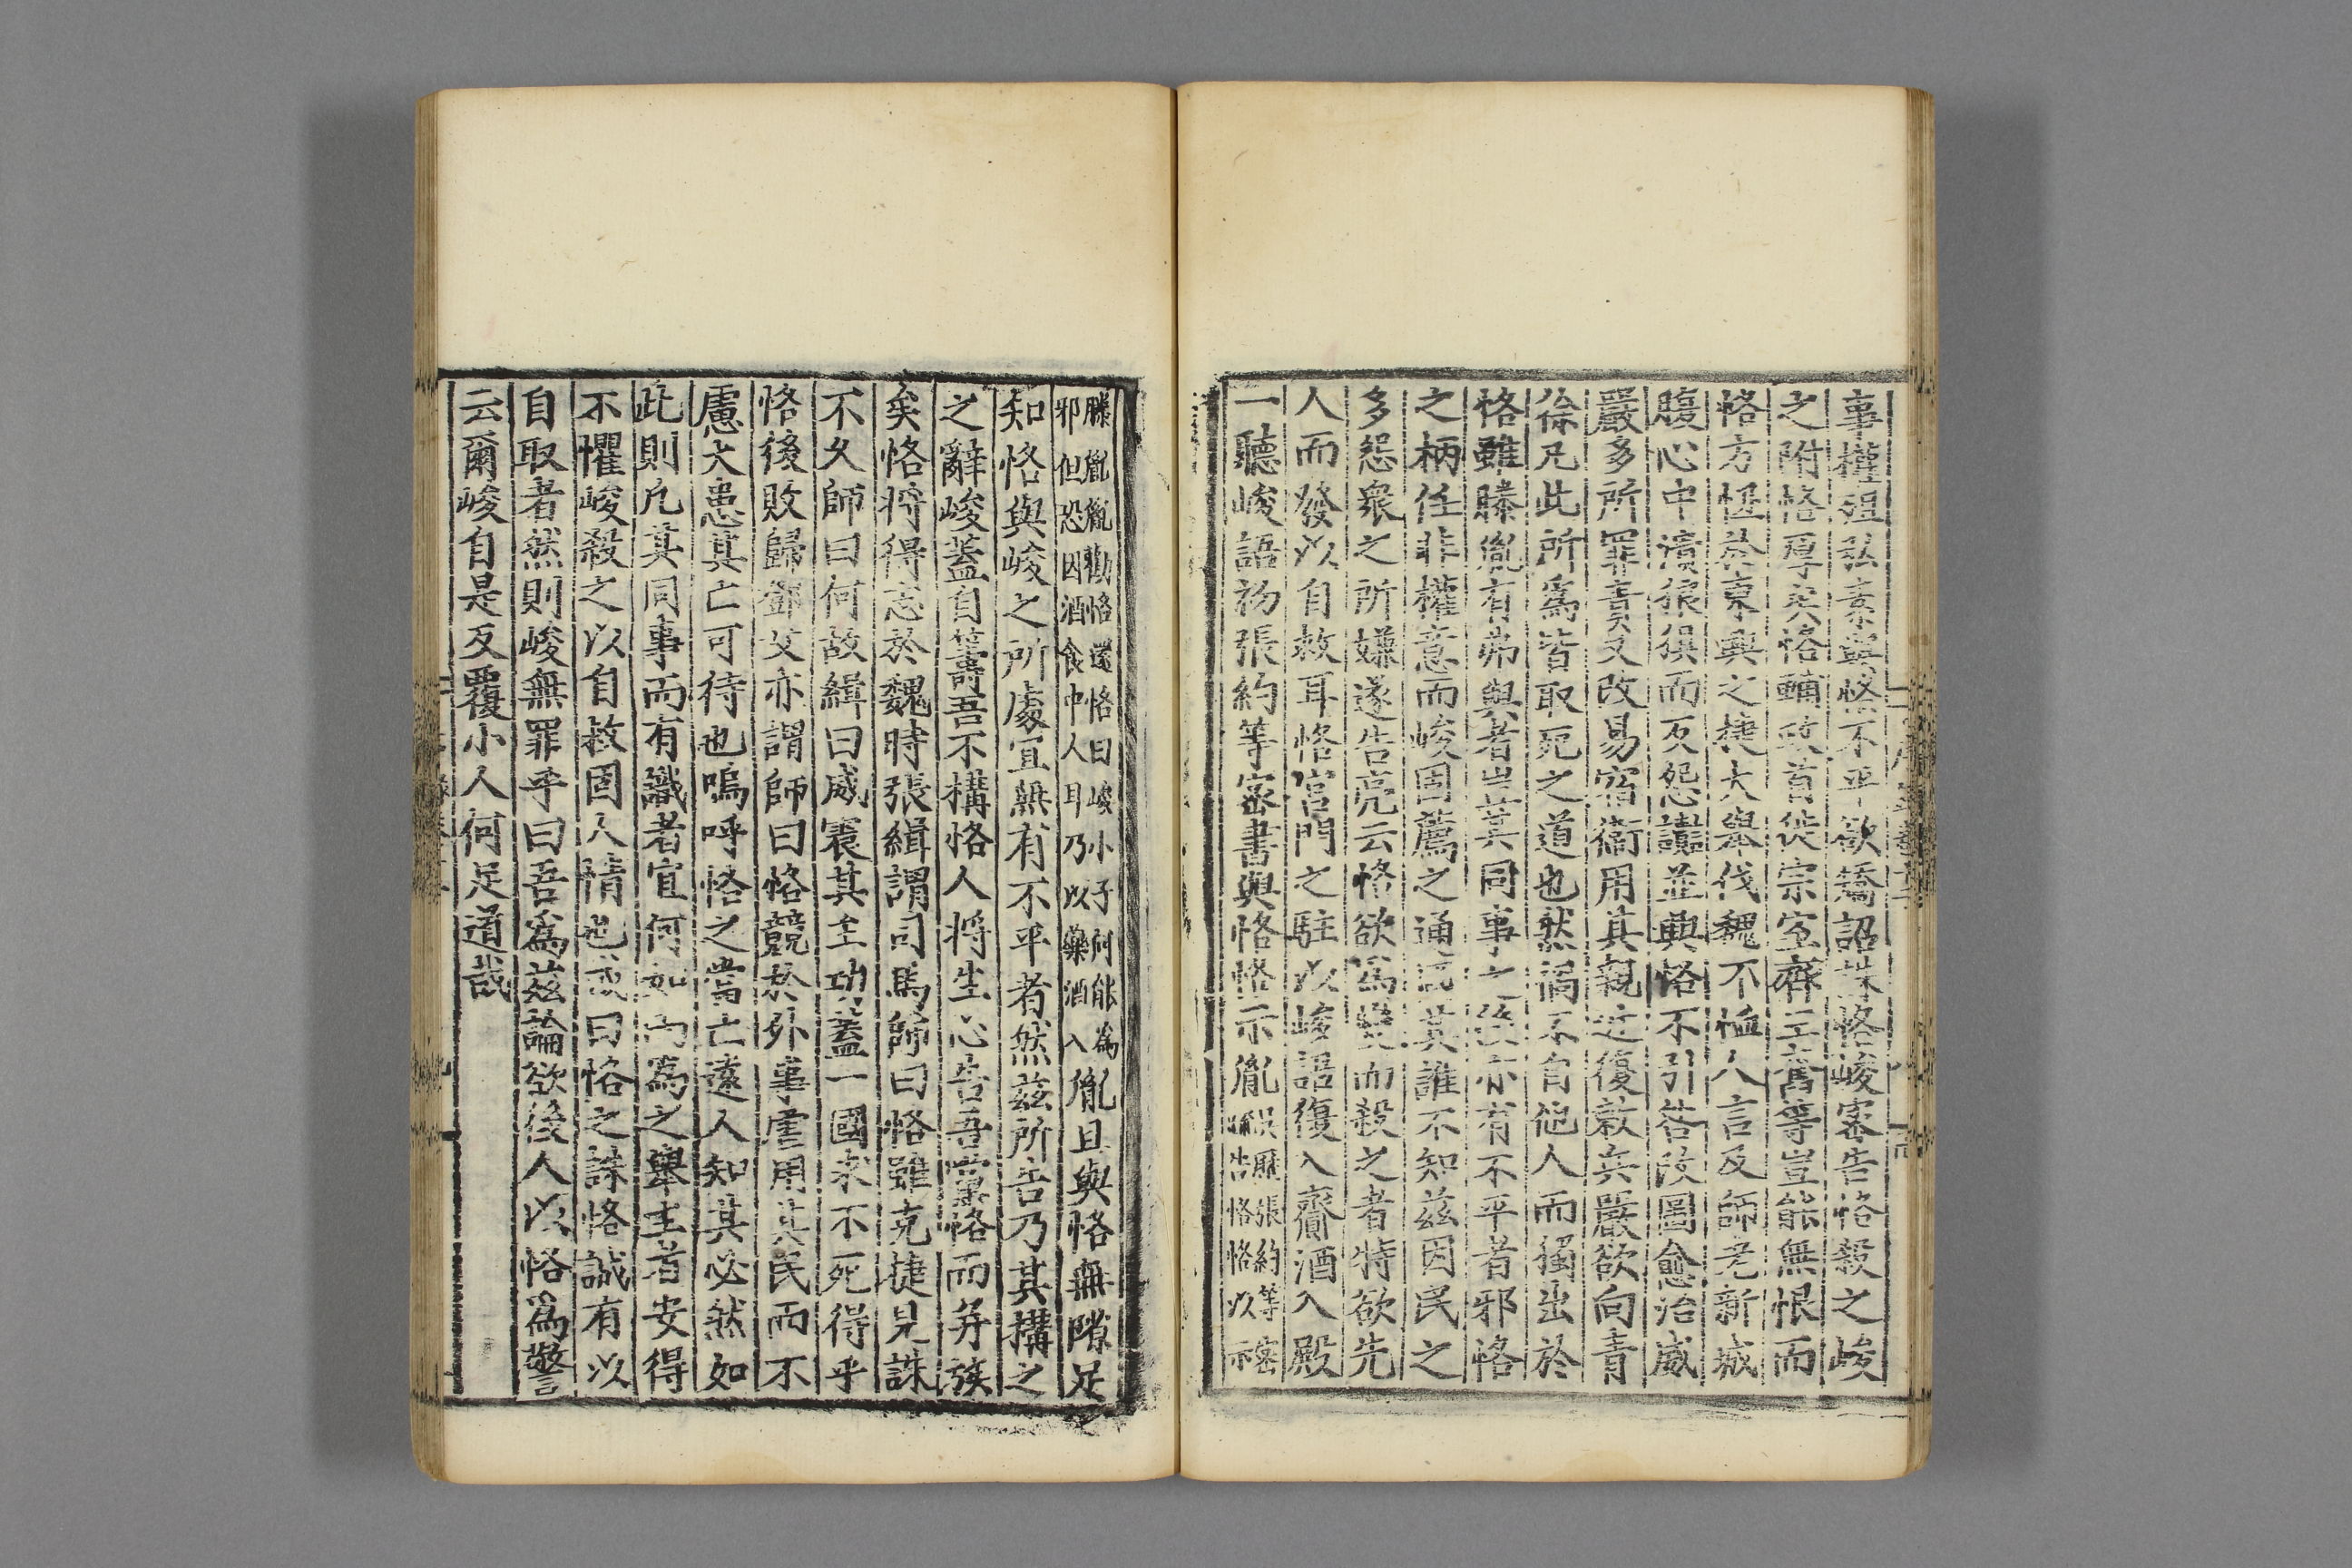 事權殂弘素與恪不平欲矯詔誅恪峻密告恪殺之峻
之附恪厚矣恪輔政首徙宗室齊王奮等豈能無恨而
恪方恃東興之捷大舉伐魏不恤人言及師老新城
腹心中潰狼狽而反怨讟並興恪不引咎改圖愈治威
嚴多所罪責又改易宿衞用其親近復敕兵嚴欲向青
徐凡此所爲皆取死之道也然禍不自他人而獨出於
恪雖滕胤有弗與者豈其同事之际亦有不平者邪恪
之柄任非權意而峻固薦之通國其誰不知茲因民之
多怨衆之所嫌遂告亮云恪欲爲變而殺之者特欲先
人而發以自救耳恪宮門之駐以峻詔復入齎酒入殿
一聽峻語初張約等密書與恪恪示胤
誤歷張約等密
嘯告恪恪以示
滕胤胤勸恪還恪曰峻小子何能爲
邪但恐因酒食中人耳乃以藥酒入
胤且與恪無隙足
知恪與峻之所處宜無有不平者然茲所告乃其搆之
之辭峻蓋自籌吾不構恪人將生心告吾黨恪而并族
矣恪將得志於魏時張緝謂司馬師曰恪雖克捷見誅
不久師曰何故緝曰威震其主功蓋一國求不死得乎
恪後敗歸鄧艾亦謂師曰恪競於外事虐用其民而不
慮大患其亡可待也嗚呼恪之當亡遠人知其必然如
此則凡其同事而有識者宜何如而爲之舉主者安得
不懼峻殺之以自救固人情也或曰恪之誅恪誠有以
自取者然則峻無罪乎曰吾爲茲論欲後人以恪爲警
云爾峻自是反覆小人何足道哉